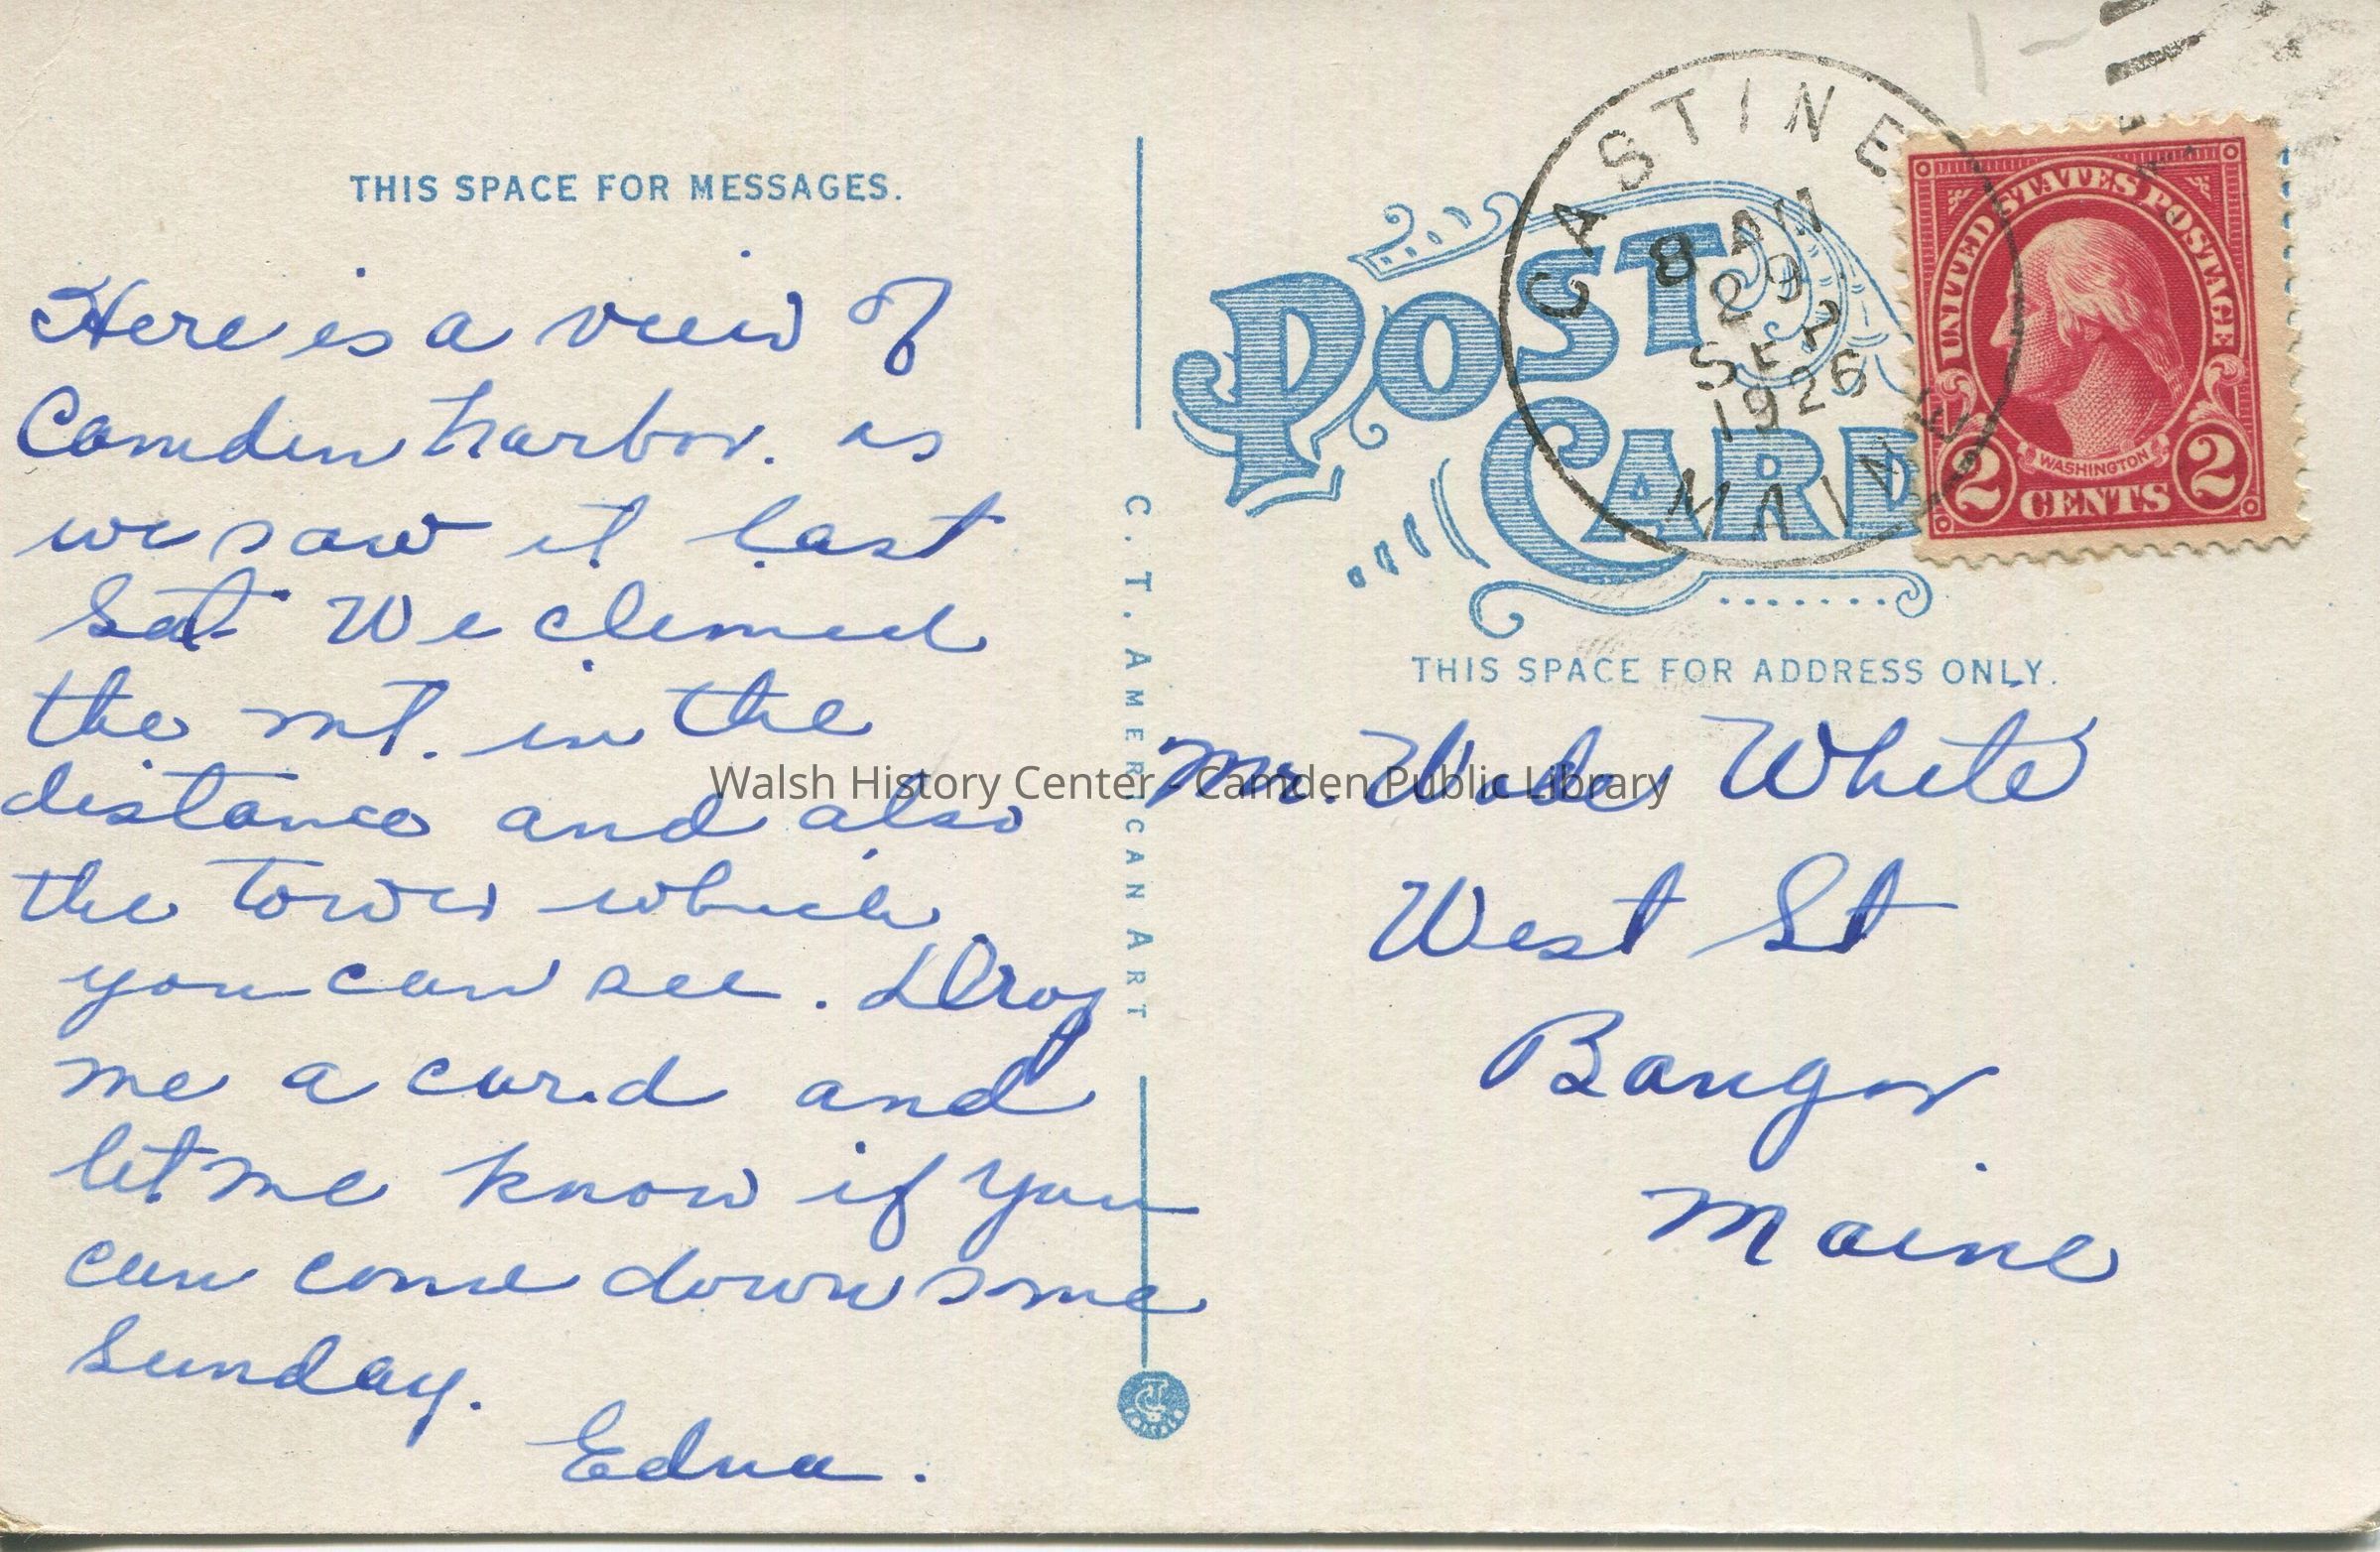 THIS SPACE FOR MESSAGES.
Here is a view of
Camden harbor. as
we saw it last
Sat. We climed
the mt. in the
distance and also
the tower which
you can see. Drop
me a card and
let me know if you
can come down some
Sunday.
Edna.
C. T. AMERICAN ART
POST
CARD
CASTINE
8 AM
SEP
1926
MAINE
UNITED STATES POSTAGE
WASHINGTON
2 CENTS 2
THIS SPACE FOR ADDRESS ONLY.
Mr. Wade White
West St
Bangor
Maine
Walsh History Center - Camden Public Library